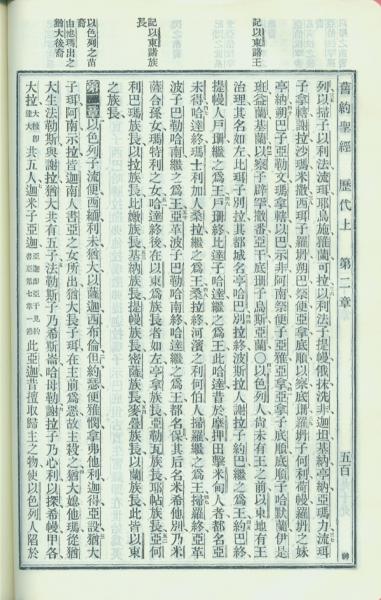 舊約聖經 歷代上 第二章 五百
記以東諸王
記以東諸族長
以色列之苗裔
由他瑪出之猶大後裔
列以掃子以利法流珥耶烏施雅蘭可拉以利法子提幔俄抹洗非迦坦基納亭納亞瑪力流珥
子拿轄謝拉沙瑪米撒西珥子羅坍朔巴祭便亞拿底順以察底珊羅坍子何利荷幔羅坍之妹
亭納朔巴子亞勒文瑪拿轄以巴示非阿南祭便子亞雅亞拿亞拿子底順底順子哈默蘭伊是
班益蘭基蘭以察子辟罕撒番亞干底珊子烏斯亞蘭〇以色列人尚未有王之前以東地有王
治理其名如左比珥子別拉其都城名亭哈巴別拉終波斯拉人謝拉子約巴繼之爲王約巴終
提幔人戶珊繼之爲王戶珊終比達子哈達繼之爲王此哈達昔於摩押田擊米甸人者都名亞
未得哈達終瑪士利加人桑拉繼之爲王桑拉終河濱之利何伯人掃羅繼之爲王掃羅終亞革
波子巴勒哈南繼之爲王亞革波子巴勒哈南終哈達繼之爲王都名保其后名米希他別乃米
薩合孫女瑪特利之女哈達終後在以東爲族長者如左亭拿族長亞勒瓦族長耶帖族長亞何
利巴瑪族長以拉族長比嫩族長基納族長提幔族長密薩族長麥疊族長以蘭族長此皆以東
之族長
第二章以色列子流便西緬利未猶大以薩迦西布倫但約瑟便雅憫拿弗他利迦得亞設猶大
子珥阿南示拉從迦南人書亞之女所出猶大長子珥在主前爲惡故主殺之猶大媳他瑪從猶
大生法勒斯與謝拉猶大共有五子法勒斯子乃希斯崙哈母勒謝拉子乃心利以探希幔甲各
大拉共五人迦米子亞迦亞迦卽亞干見約書亞第七章一節此亞迦昔擅取歸主之物使以色列人陷於